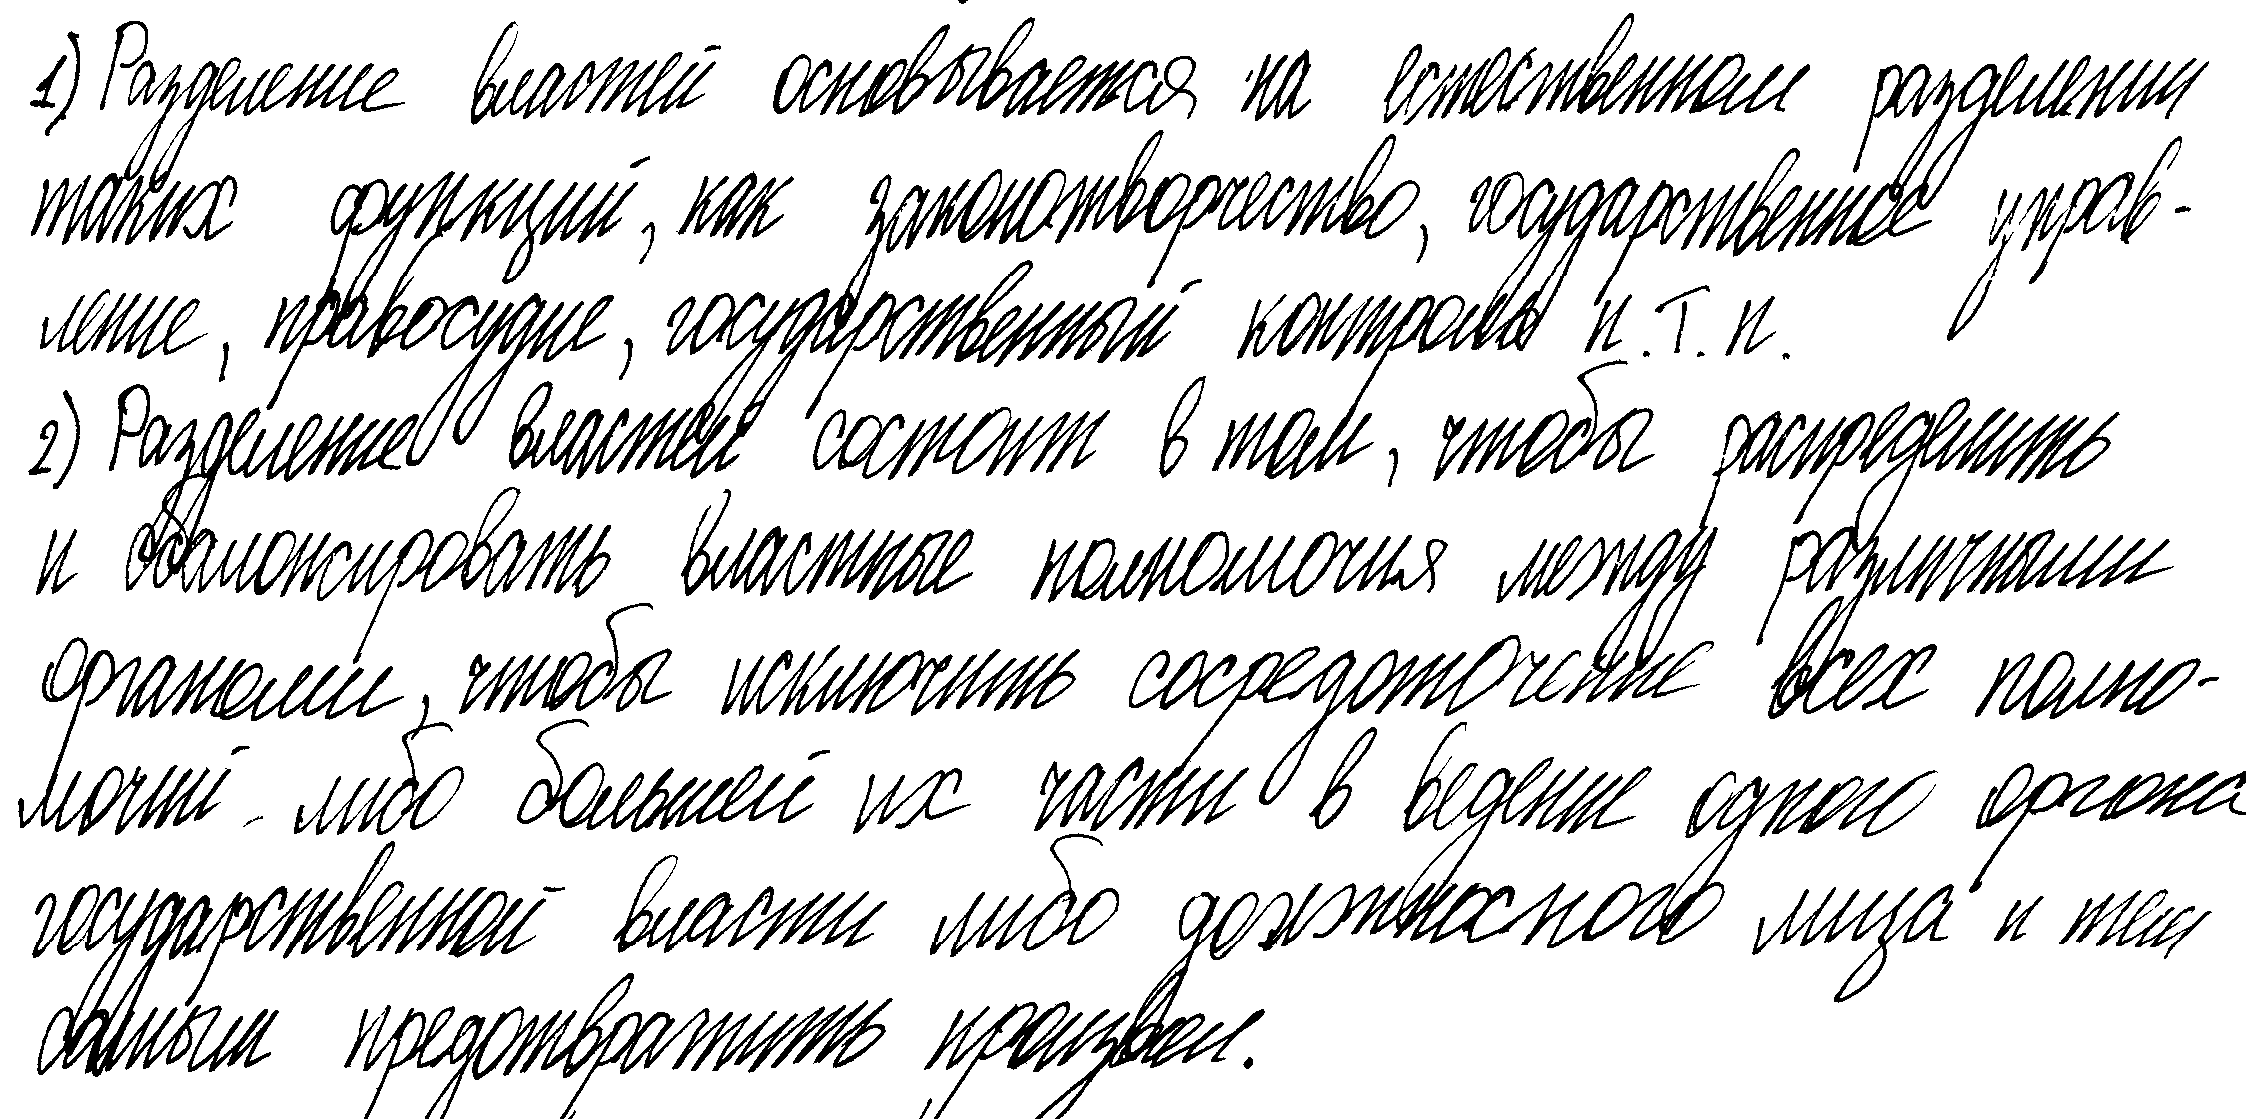 1) Разделение властей основывается на естественном разделении
таких функций, как законотворчество, государственное управ-
ление, правосудие, государственный контроль и.т.п.
2) Разделение властей состоит в том, чтобы распределить
и сбалансировать властные полномочия между различными
органами, чтобы исключить сосредоточение всех полно-
мочий либо большей их части в ведение одного органа
государственной власти либо должностного лица и тем
самым предотвратить произвол.